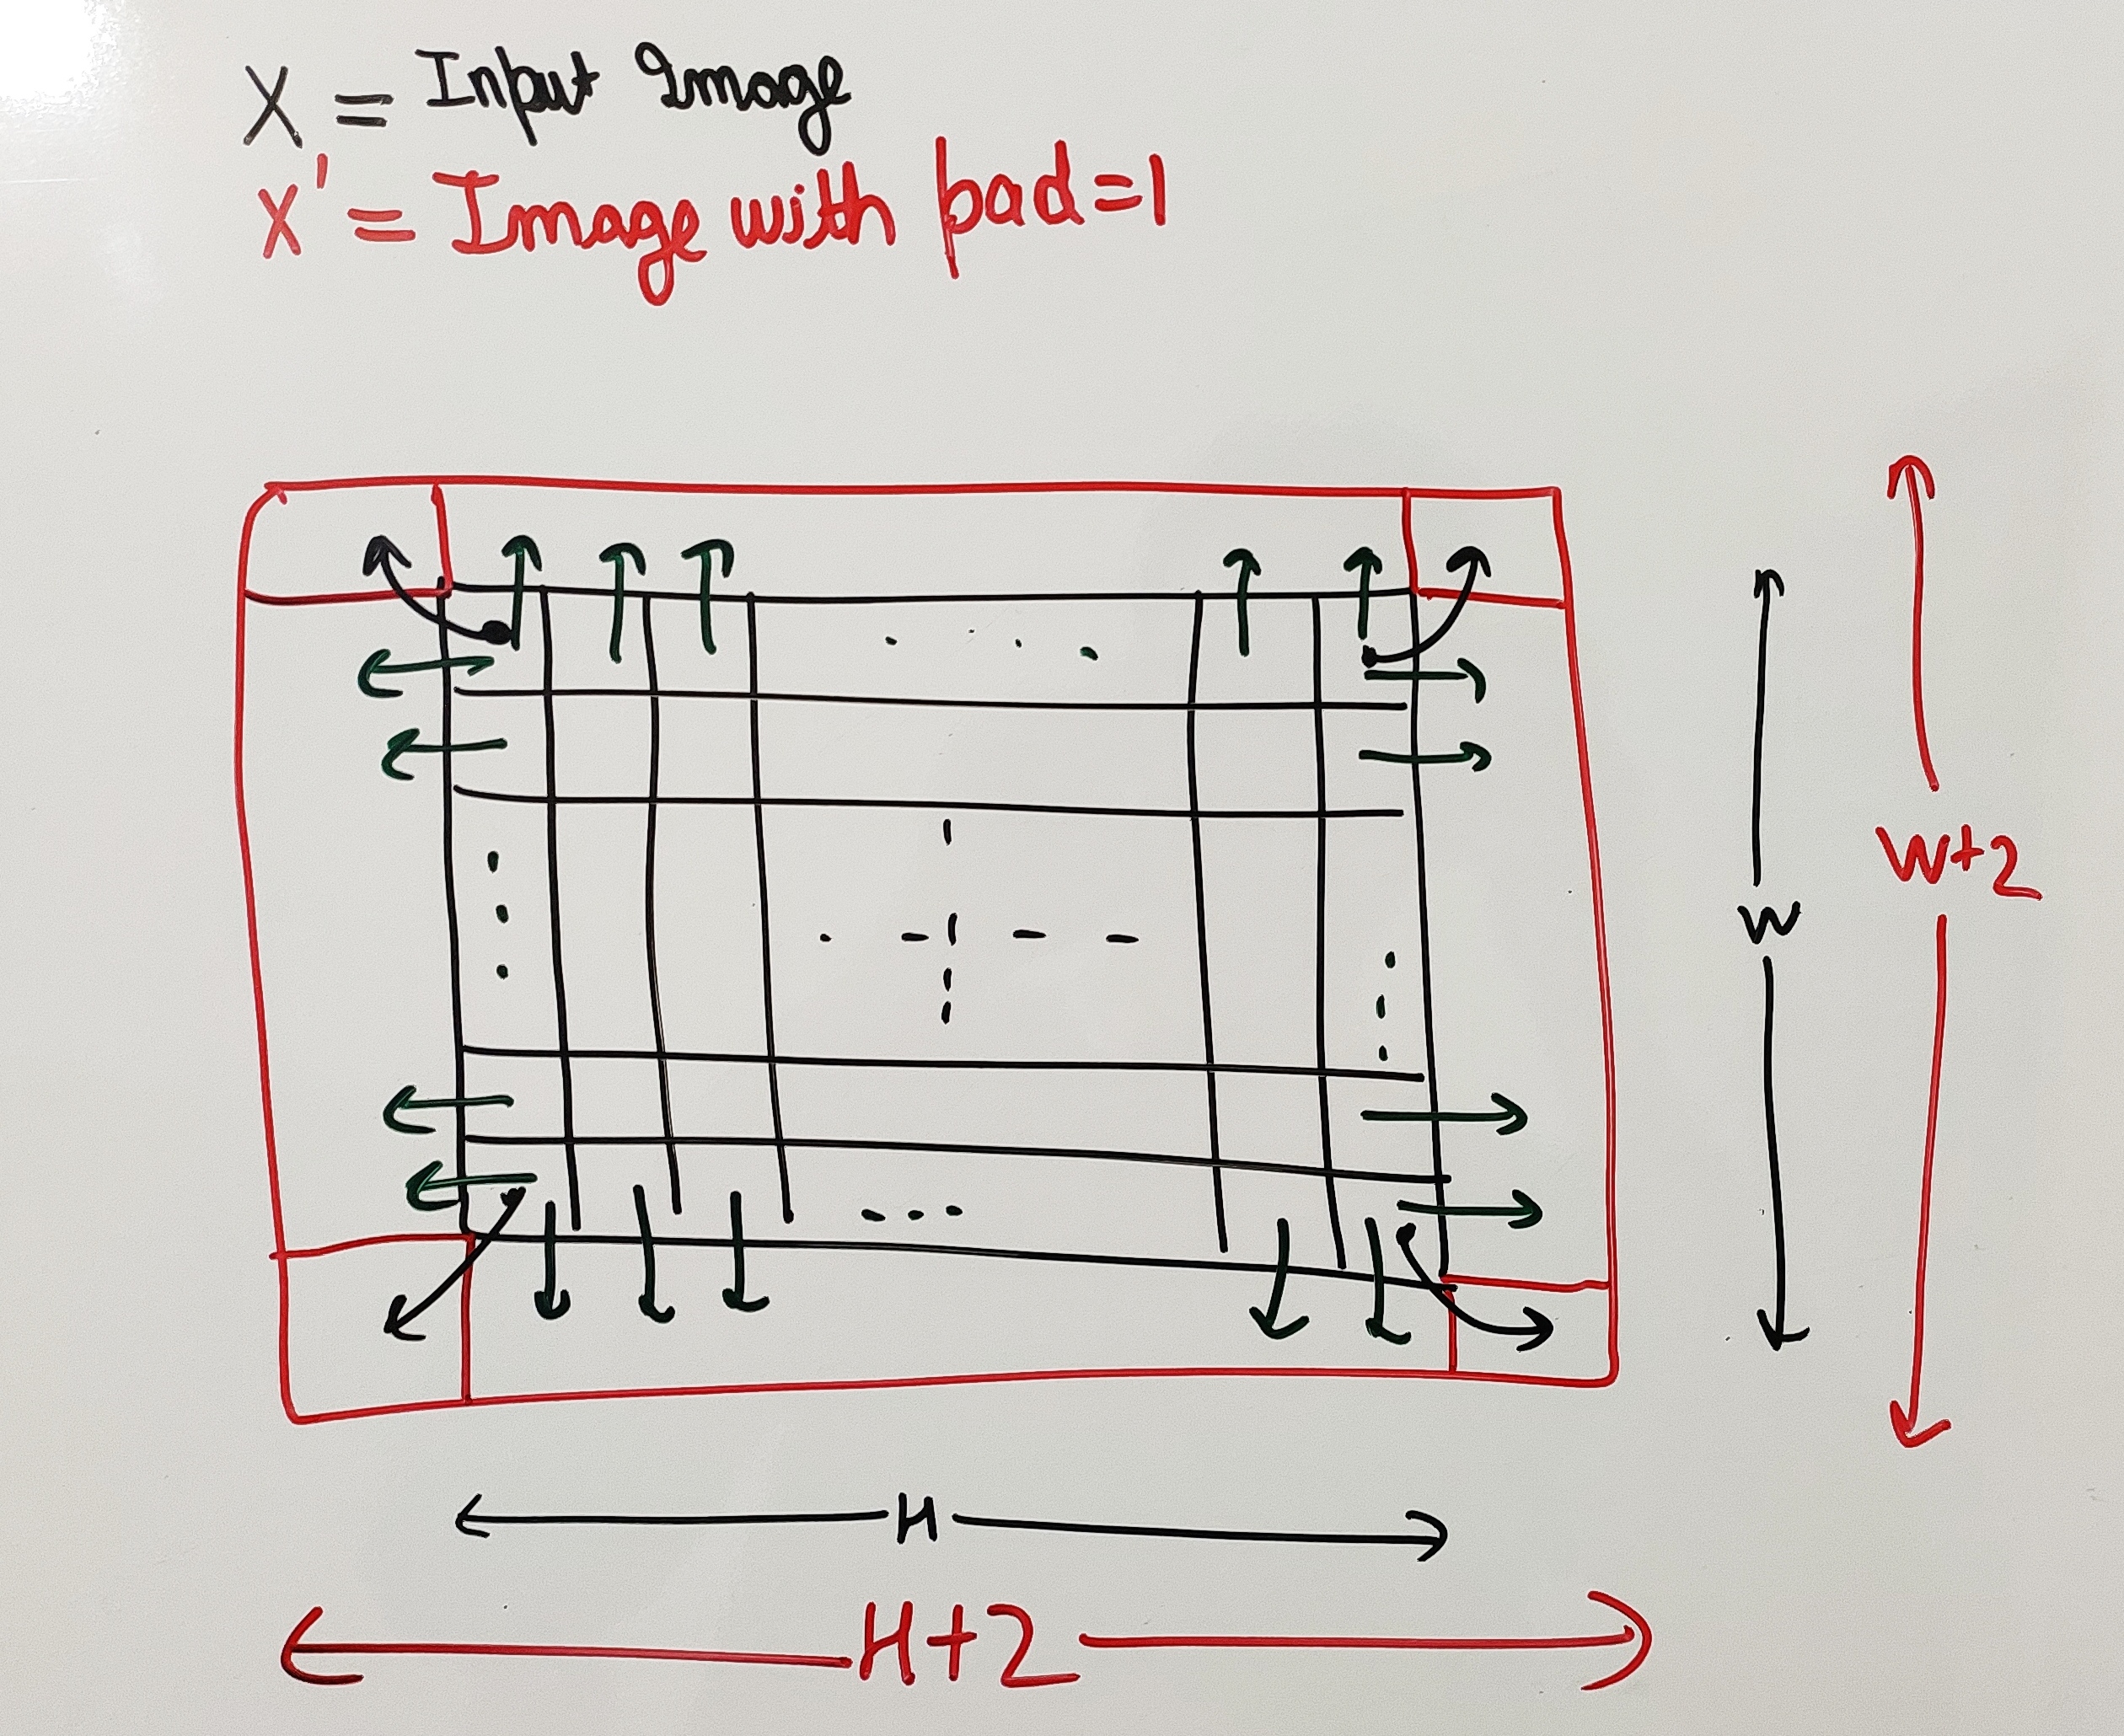 X = Input Image
X' = Image with pad=1
W
W+2
H
H+2